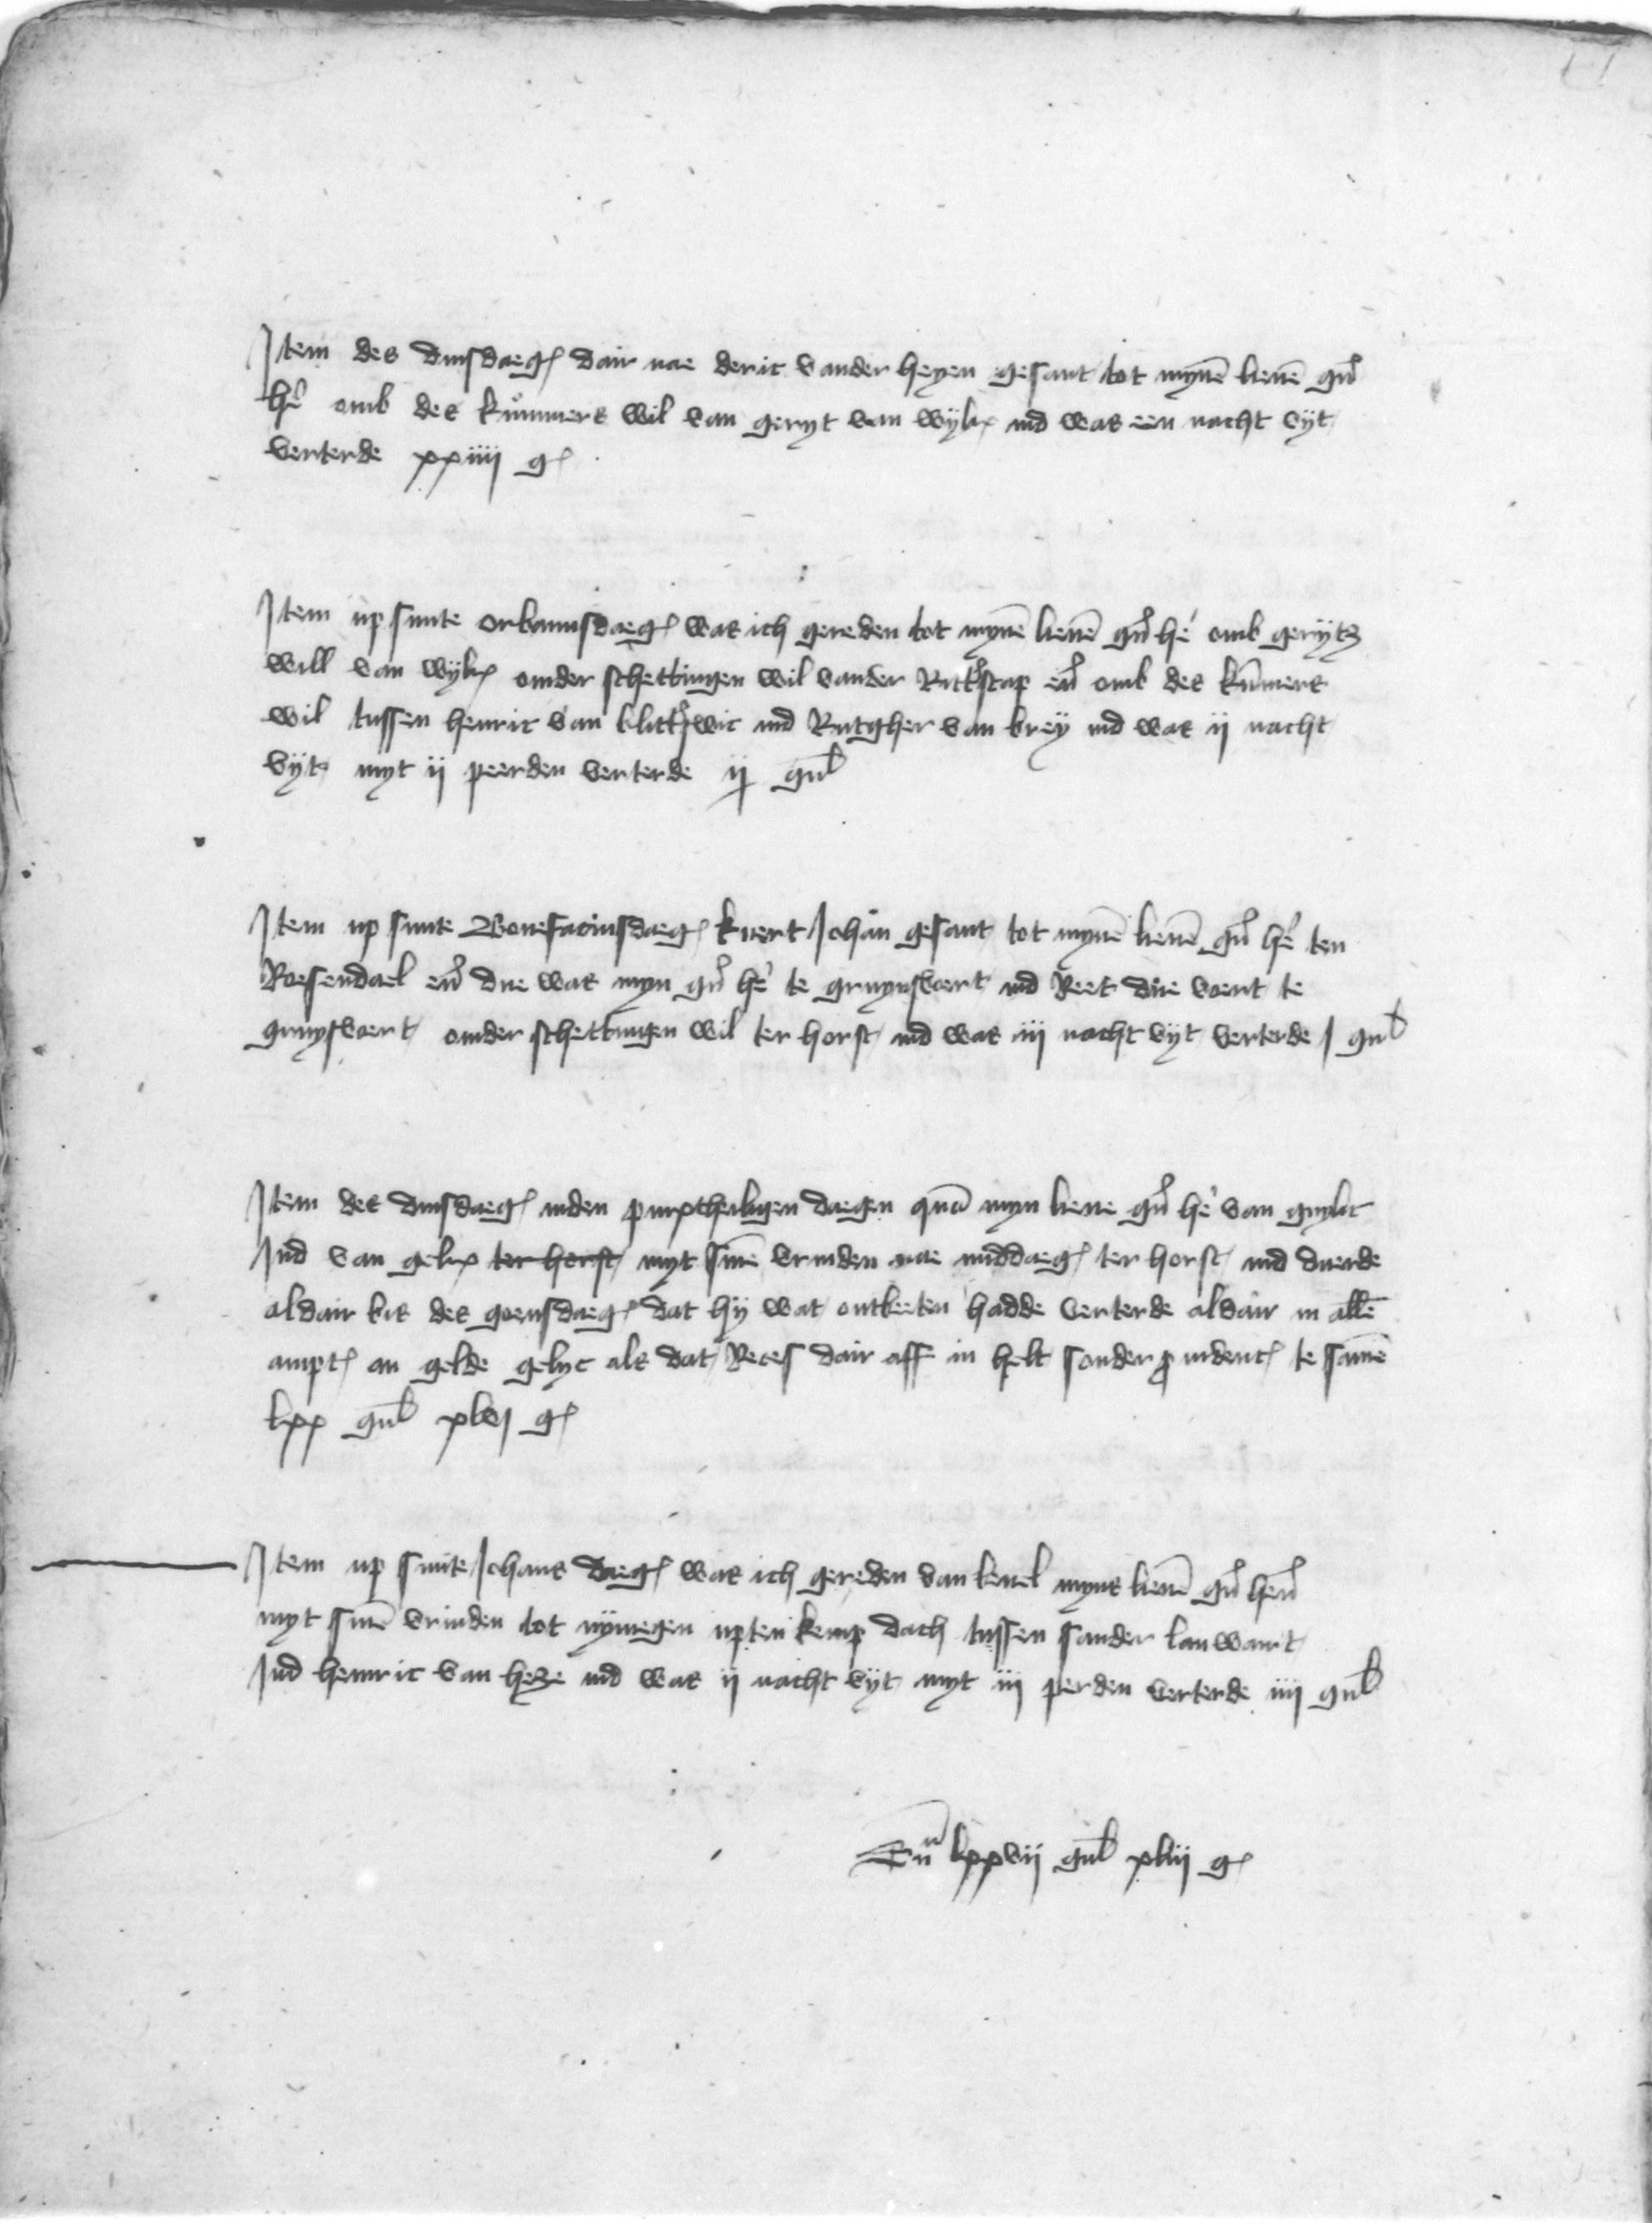 Item des dinsdaegs dair nae deric vander heyen gesant tot mynen lieuen gned
her omb des kummers wil van geryt van wylix ind was een nacht vyt
verterde xxiiii gr
Item up sunte orbanusdaegs was ich gereden tot mynen lieuen gned her omb gerytz
will van wylix omder schettingen wil vander Ritterscap end omb des kummers
wil tussen henric van blitterswic ind Rutgher van brey ind was ij nacht
vyt myt ij peerden verterde ij gul
Item up sunte Bonefaciusdaegs kuert Johan gesant tot mynen lieuen gned her ten
Roesendael end due was myn gned her te gruynsvoert ind Reet due voert te
gruysvoert omder schettingen wil ter horst ind was iij nacht vyt verterde j gul
Item des dinsdaegs inden pinxtheiligen daegen quam myn lieue gned her van guylic
Ind van gelre ter horst myt sinen vrinden nae middaegs ter horst ind duerde
aldair bis des goensdaegs dat hy wat ontbeeten hadde verterde aldair in allen
ampten an gelde gelyc als dat Reces dair aff in helt sonder prudencien te samen
lxx gul xlvij gr
Item up sunte Johans daegs was ich gereden van beuel myns lieuen gned heren
myt sinen vrinden tot nymegen upten kemp dach tussen sander lauwart
Ind henric van heze ind was ij nacht vyt myt iij perden verterde iiij gul
Summa lxxvii gul xlvij gr